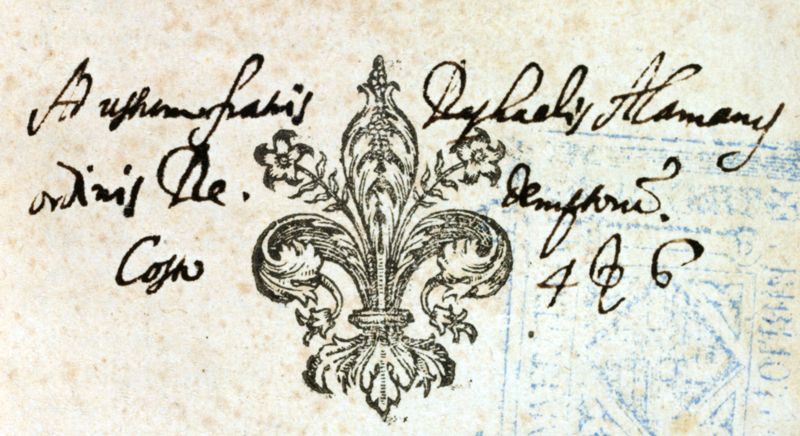 Ad usum fratris Raphaelis Alamany
ordinis Re. demptorũ.
Costo 4 6